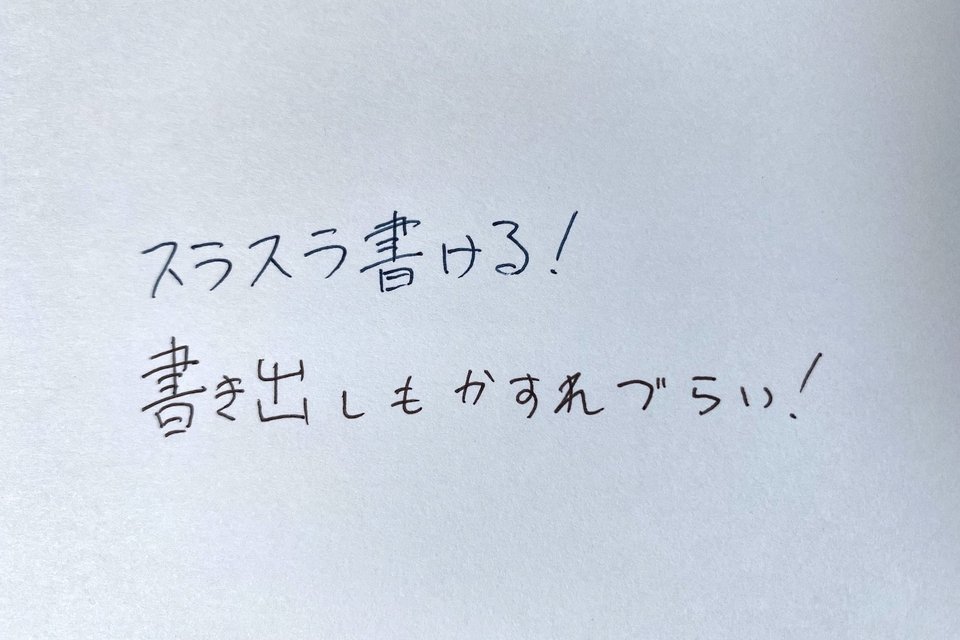 スラスラ書ける!
書き出しもかすれづらい!